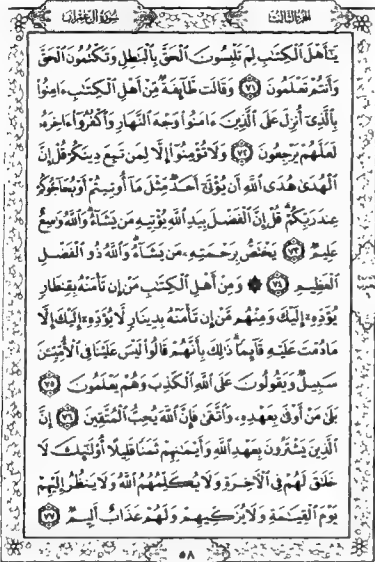 سورة آل عمران
الجزء الثالث
يَٰٓأَهۡلَ ٱلۡكِتَٰبِ لِمَ تَلۡبِسُونَ ٱلۡحَقَّ بِٱلۡبَٰطِلِ وَتَكۡتُمُونَ ٱلۡحَقَّ
وَأَنتُمۡ تَعۡلَمُونَ ٧١ وَقَالَت طَّآئِفَةٞ مِّنۡ أَهۡلِ ٱلۡكِتَٰبِ ءَامِنُواْ
بِٱلَّذِيٓ أُنزِلَ عَلَى ٱلَّذِينَ ءَامَنُواْ وَجۡهَ ٱلنَّهَارِ وَٱكۡفُرُوٓاْ ءَاخِرَهُۥ
لَعَلَّهُمۡ يَرۡجِعُونَ ٧٢ وَلَا تُؤۡمِنُوٓاْ إِلَّا لِمَن تَبِعَ دِينَكُمۡ قُلۡ إِنَّ
ٱلۡهُدَىٰ هُدَى ٱللَّهِ أَن يُؤۡتَىٰٓ أَحَدٞ مِّثۡلَ مَآ أُوتِيتُمۡ أَوۡ يُحَآجُّوكُمۡ
عِندَ رَبِّكُمۡۗ قُلۡ إِنَّ ٱلۡفَضۡلَ بِيَدِ ٱللَّهِ يُؤۡتِيهِ مَن يَشَآءُۗ وَٱللَّهُ وَٰسِعٌ
عَلِيمٞ ٧٣ يَخۡتَصُّ بِرَحۡمَتِهِۦ مَن يَشَآءُۗ وَٱللَّهُ ذُو ٱلۡفَضۡلِ
ٱلۡعَظِيمِ ٧٤ ۞ وَمِنۡ أَهۡلِ ٱلۡكِتَٰبِ مَنۡ إِن تَأۡمَنۡهُ بِقِنطَارٖ
يُؤَدِّهِۦٓ إِلَيۡكَ وَمِنۡهُم مَّنۡ إِن تَأۡمَنۡهُ بِدِينَارٖ لَّا يُؤَدِّهِۦٓ إِلَيۡكَ إِلَّا
مَا دُمۡتَ عَلَيۡهِ قَآئِمٗاۗ ذَٰلِكَ بِأَنَّهُمۡ قَالُواْ لَيۡسَ عَلَيۡنَا فِي ٱلۡأُمِّيِّـۧنَ
سَبِيلٞ وَيَقُولُونَ عَلَى ٱللَّهِ ٱلۡكَذِبَ وَهُمۡ يَعۡلَمُونَ ٧٥
بَلَىٰ مَنۡ أَوۡفَىٰ بِعَهۡدِهِۦ وَٱتَّقَىٰ فَإِنَّ ٱللَّهَ يُحِبُّ ٱلۡمُتَّقِينَ ٧٦ إِنَّ
ٱلَّذِينَ يَشۡتَرُونَ بِعَهۡدِ ٱللَّهِ وَأَيۡمَٰنِهِمۡ ثَمَنٗا قَلِيلًا أُوْلَٰٓئِكَ لَا
خَلَٰقَ لَهُمۡ فِي ٱلۡأٓخِرَةِ وَلَا يُكَلِّمُهُمُ ٱللَّهُ وَلَا يَنظُرُ إِلَيۡهِمۡ
يَوۡمَ ٱلۡقِيَٰمَةِ وَلَا يُزَكِّيهِمۡ وَلَهُمۡ عَذَابٌ أَلِيمٞ ٧٧
٥٨